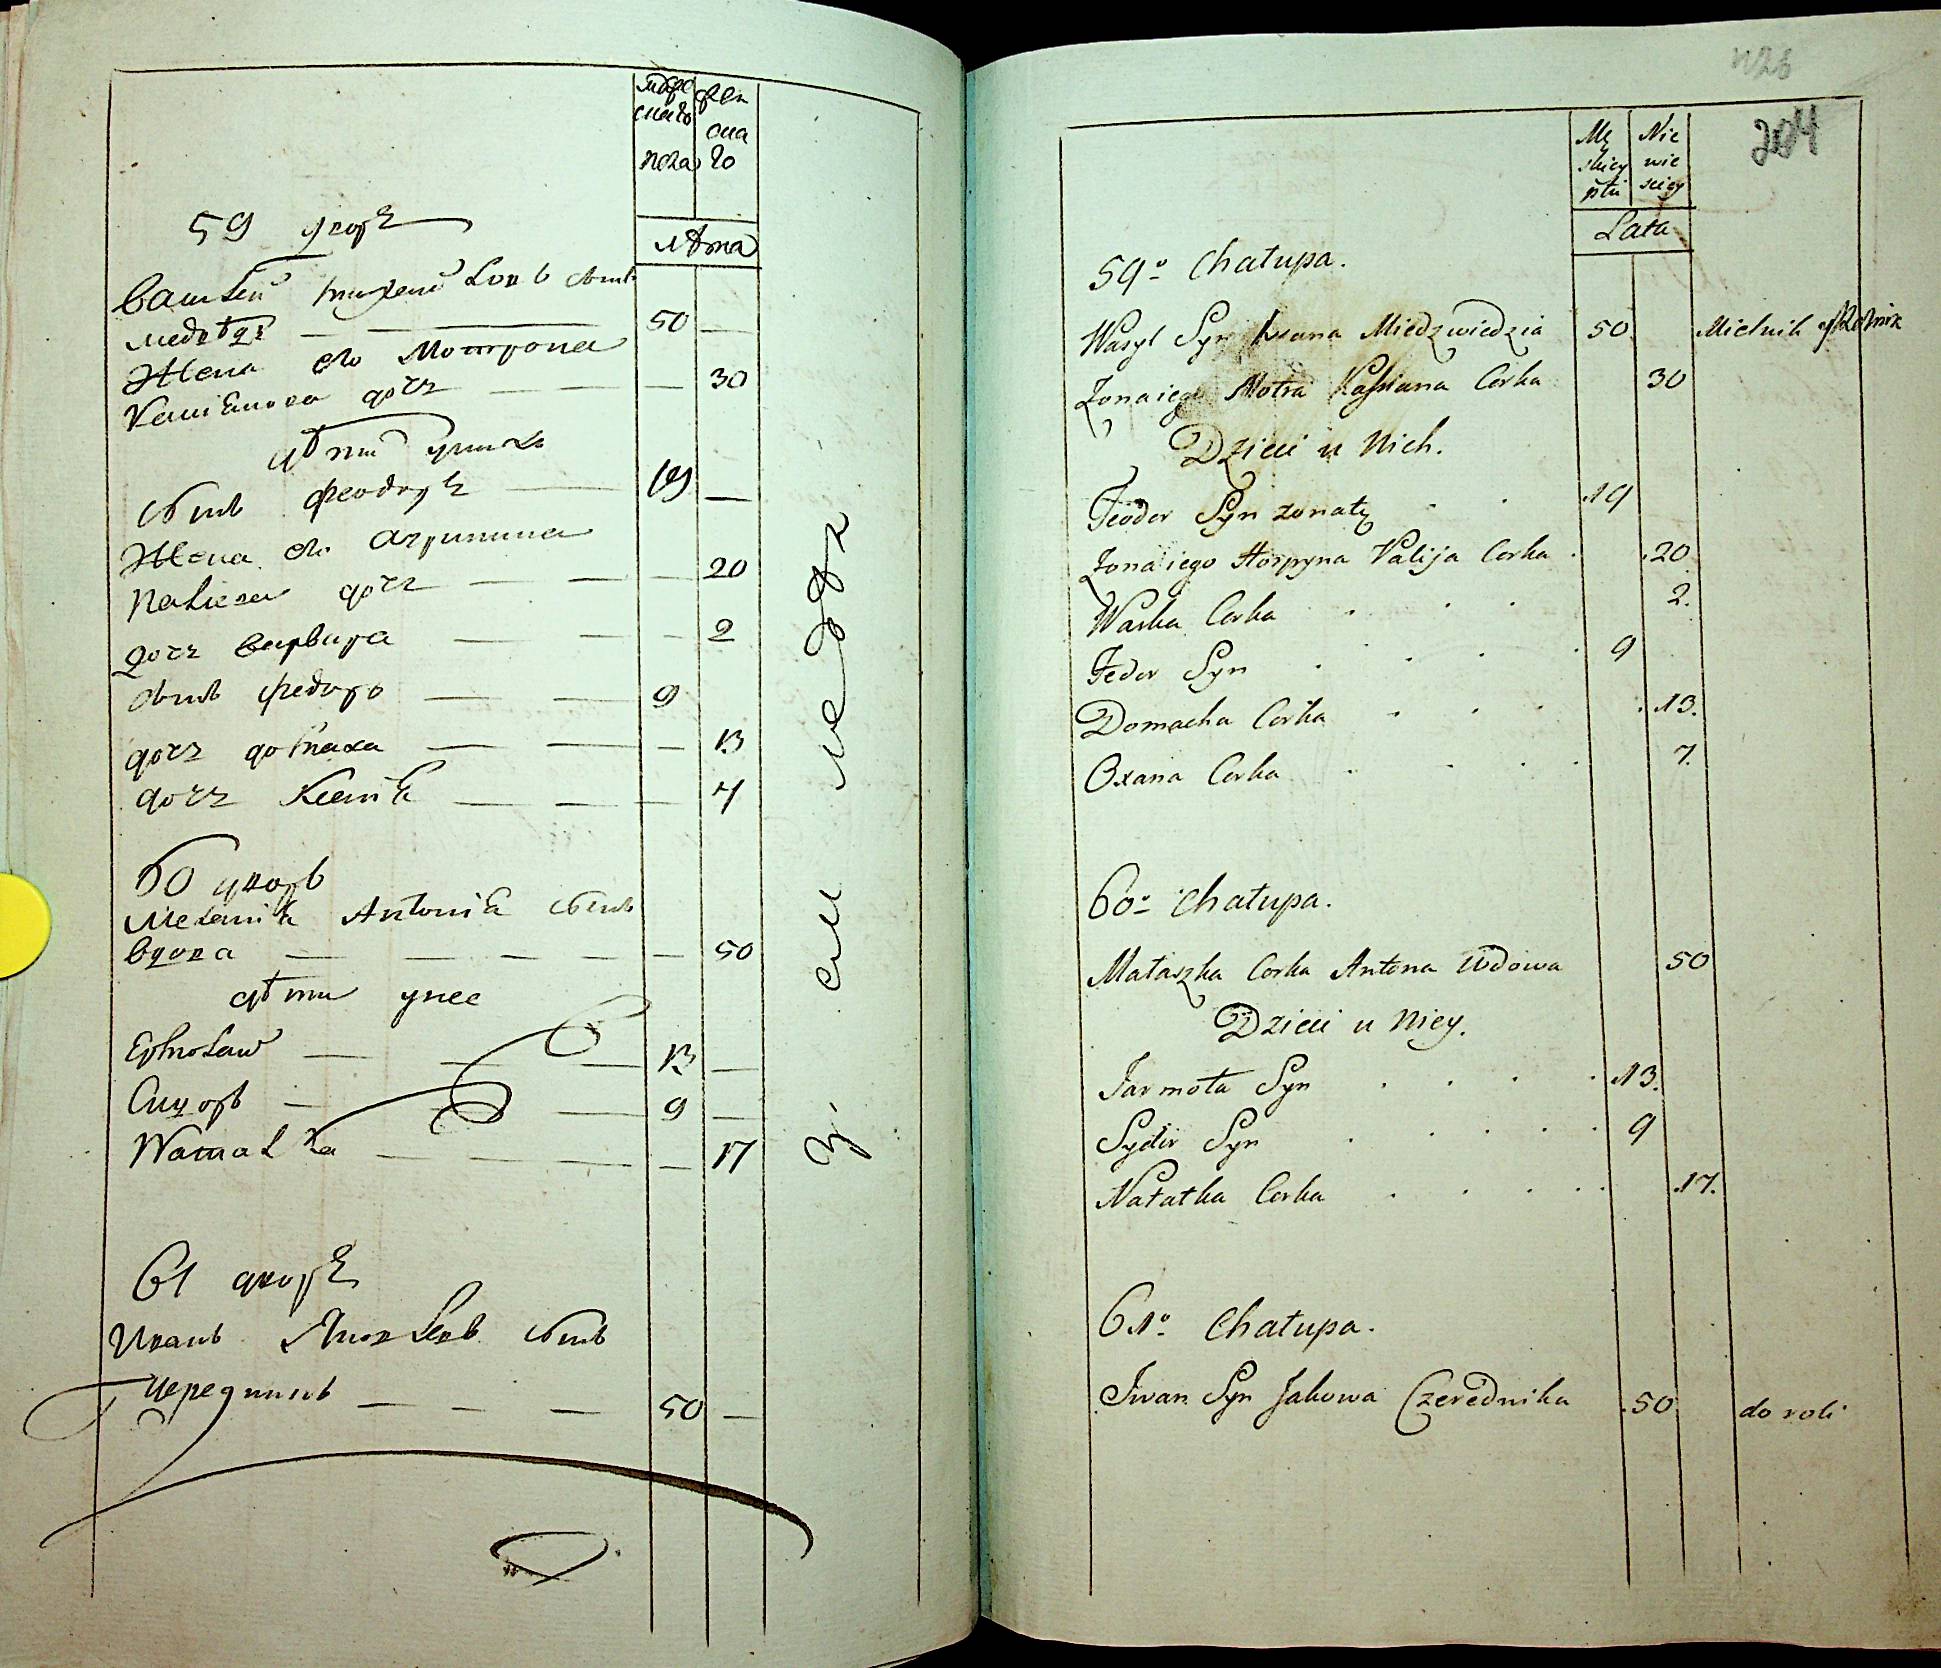 мужескаго пола
женскаго
лѣта
59 дворъ
Василий сынъ
медвѣдь 50
Жена его Мотрона
дочь 30
дѣти у нихъ
сынъ Феодоръ 19
Жена его Агрипина
Палиева дочь 20
дочь Варвара 2
сынъ Федоръ 9
дочь домаха 13
дочь Ксенія 7
60 дворъ
Меланія Антонія
вдова 50
дѣти у нее
Ермолай 13
Сидоръ 9
Наталка 17
61 дворъ
Иванъ Яковлевъ сынъ
Чередникъ 50
426
204
Męskiey płci
Niewieściey
Lata
59º Chałupa.
Wasyl Syn Iwana Miedzwiedzia 50 Mielnik
Zona iego Motra Kassiana Corka 30
Dzieci u Nich.
Feodor Syn zonaty 19
Zona iego Horpyna Palija Corka 20
Warka Corka 2.
Fedor Syn 9
Domacha Corka 13.
Oxana Corka 7.
60º Chałupa.
Małaszka Corka Antona Wdowa 50
Dzieci u Niey.
Jarmoła Syn 13.
Sydir Syn 9
Natałka Corka 17.
61º Chałupa.
Iwan Syn Jakowa Czerednika 50 do roli